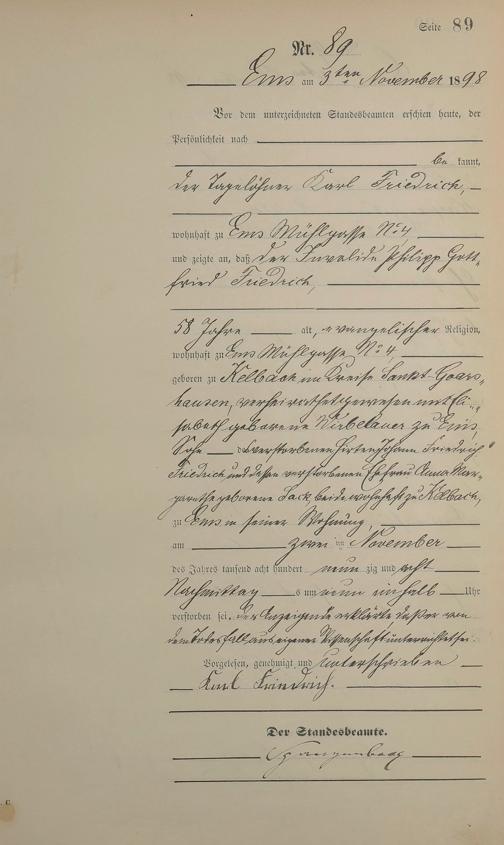 Seite 89
Nr. 89
Ems am 3ten November 1898
Vor dem unterzeichneten Standesbeamten erschien heute, der
Persönlichkeit nach
be kannt,
der Tagelöhner Karl Friedrich,
wohnhaft zu Ems Mühlgasse No 4
und zeigte an, daß der Invalide Philipp Gott-
fried Friedrich,
58 Jahre alt, evangelischer Religion,
wohnhaft zu Ems Mühlgasse No 4,
geboren zu Kelbach im Kreise Sankt Goars-
hausen, verheirathet gewesen mit Eli-
sabeth geborene Wirbelauer zu Ems,
Sohn des verstorbenen Hirten Johann Friedrich
Friedrich und dessen verstorbenen Ehefrau Anna Mar-
garethe geborene Sack, beide wohnhaft zu Kelbach,
zu Ems in seiner Wohnung,
am zwei ten November
des Jahres tausend acht hundert neun zig und acht
Nachmittag s um neun einhalb Uhr
verstorben sei. Der Anzeigende erklärte, daß er von
dem Todesfall aus eigener Wissenschaft unterrichtet sei.
Vorgelesen, genehmigt und unterschrieben
Karl Friedrich.
Der Standesbeamte.
Spangenberg